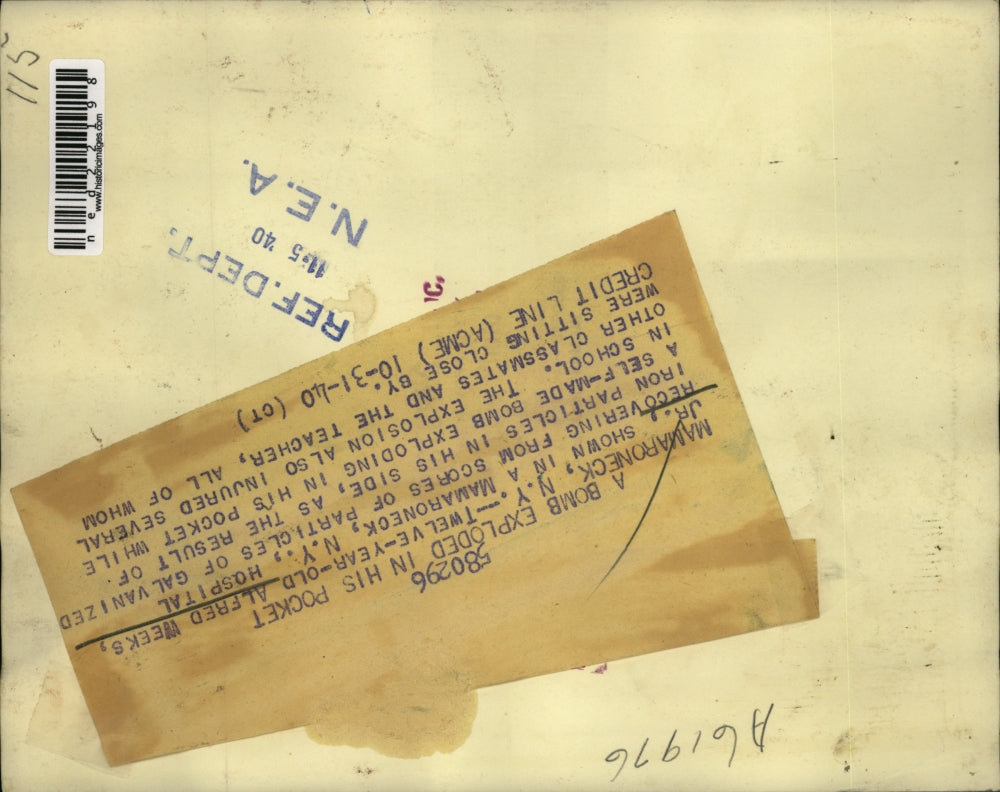 580296
A BOMB EXPLODED IN HIS POCKET
MAMARONECK, N.Y.--TWELVE-YEAR-OLD ALFRED WEEKS,
JR., SHOWN IN A MAMARONECK, N.Y., HOSPITAL
RECOVERING FROM SCORES OF PARTICLES OF GALVANIZED
IRON PARTICLES IN HIS SIDE, AS THE RESULT OF
A SELF-MADE BOMB EXPLODING IN HIS POCKET WHILE
IN SCHOOL. THE EXPLOSION ALSO INJURED SEVERAL
OTHER CLASSMATES AND THE TEACHER, ALL OF WHOM
WERE SITTING CLOSE BY.
CREDIT LINE (ACME) 10-31-40 (CT)
REF. DEPT.
11-5 '40
N.E.A.
A61976
115
ned22198
www.historicimages.com
IC.